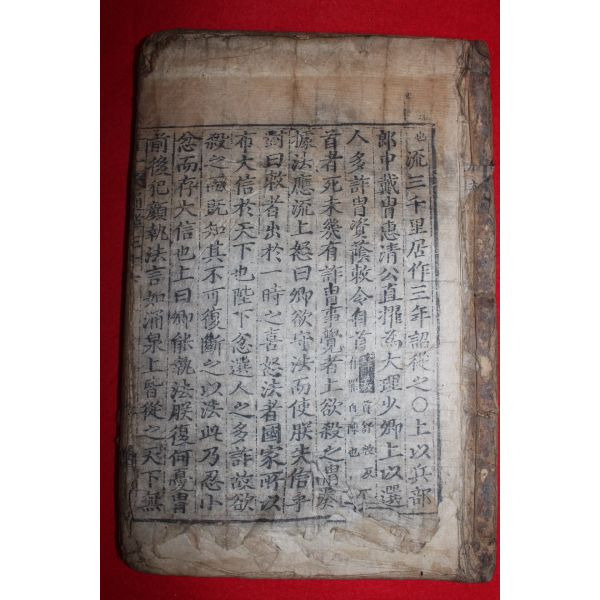 流三千里居作三年詔從之○上以兵部
郎中戴冑忠清公直擢爲大理少卿上以選
人多詐冑資蔭敕令自首
首者死未幾有詐冑事覺者上欲殺之冑奏
據法應流上怒曰卿欲守法而使朕失信乎
對曰敕者出於一時之喜怒法者國家所以
布大信於天下也陛下忿選人之多詐故欲
殺之而既知其不可復斷之以法此乃忍小
忿而存大信也上曰卿能執法朕復何憂冑
前後犯顏執法言如涌泉上皆從之天下無